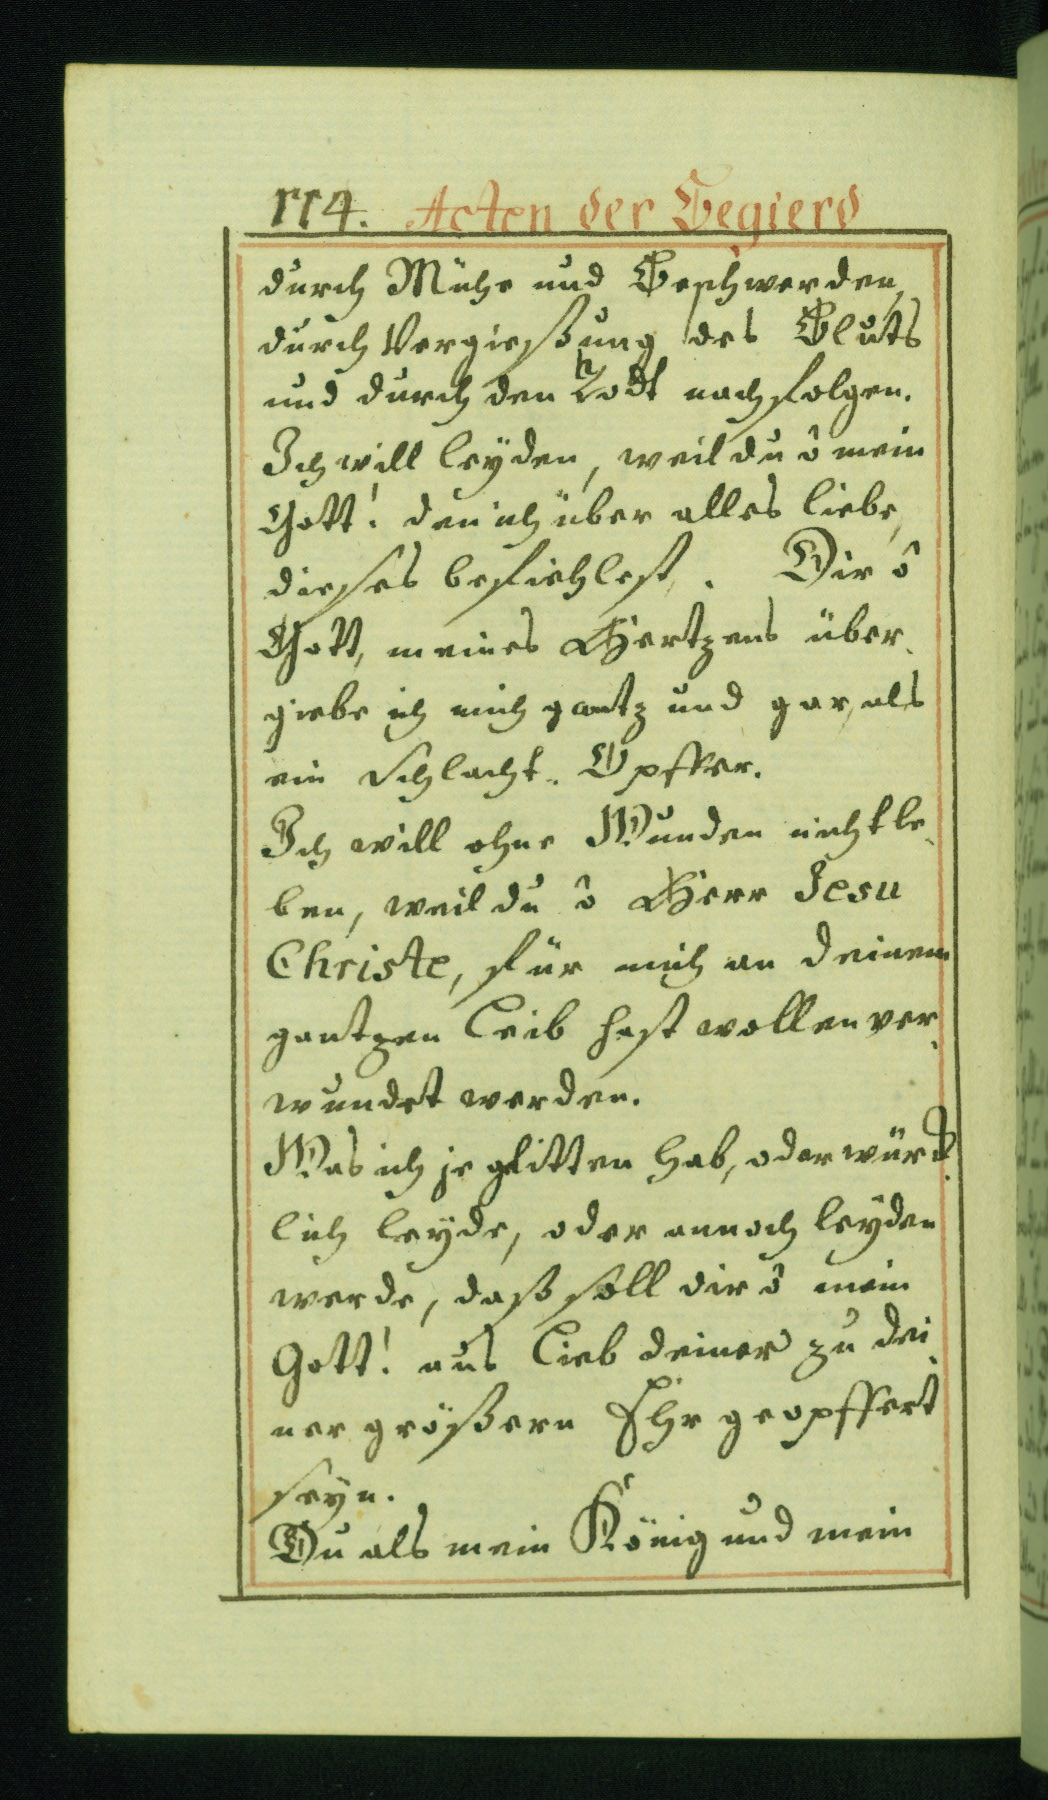 114. Acten der Begierd
durch Mühe und Beschwerden,
durch Vergiessung des Bluts
und durch den Todt nachfolgen.
Ich will leyden, weil du ô mein
Gott! den ich über alles liebe,
dieses befiehlest. Dir ô
Gott, meines Hertzens über-
giebe ich mich gantz und gar, als
ein Schlacht-Opffer.
Ich will ohne Wunden nicht le-
ben, weil du ô Herr Jesu
Christe, für mich an deinem
gantzen Leib hast wollen ver-
wundet werden.
Was ich je glitten hab, oder würck-
lich leyde, oder annoch leyden
werde, daß soll dir ô mein
Gott! aus Lieb deiner zu dei-
ner größern Ehr geopffert
seyn.
Du als mein König und mein